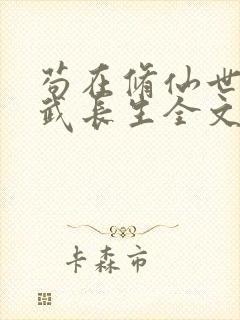 苟在脩仙世
武长生全文
卡森市